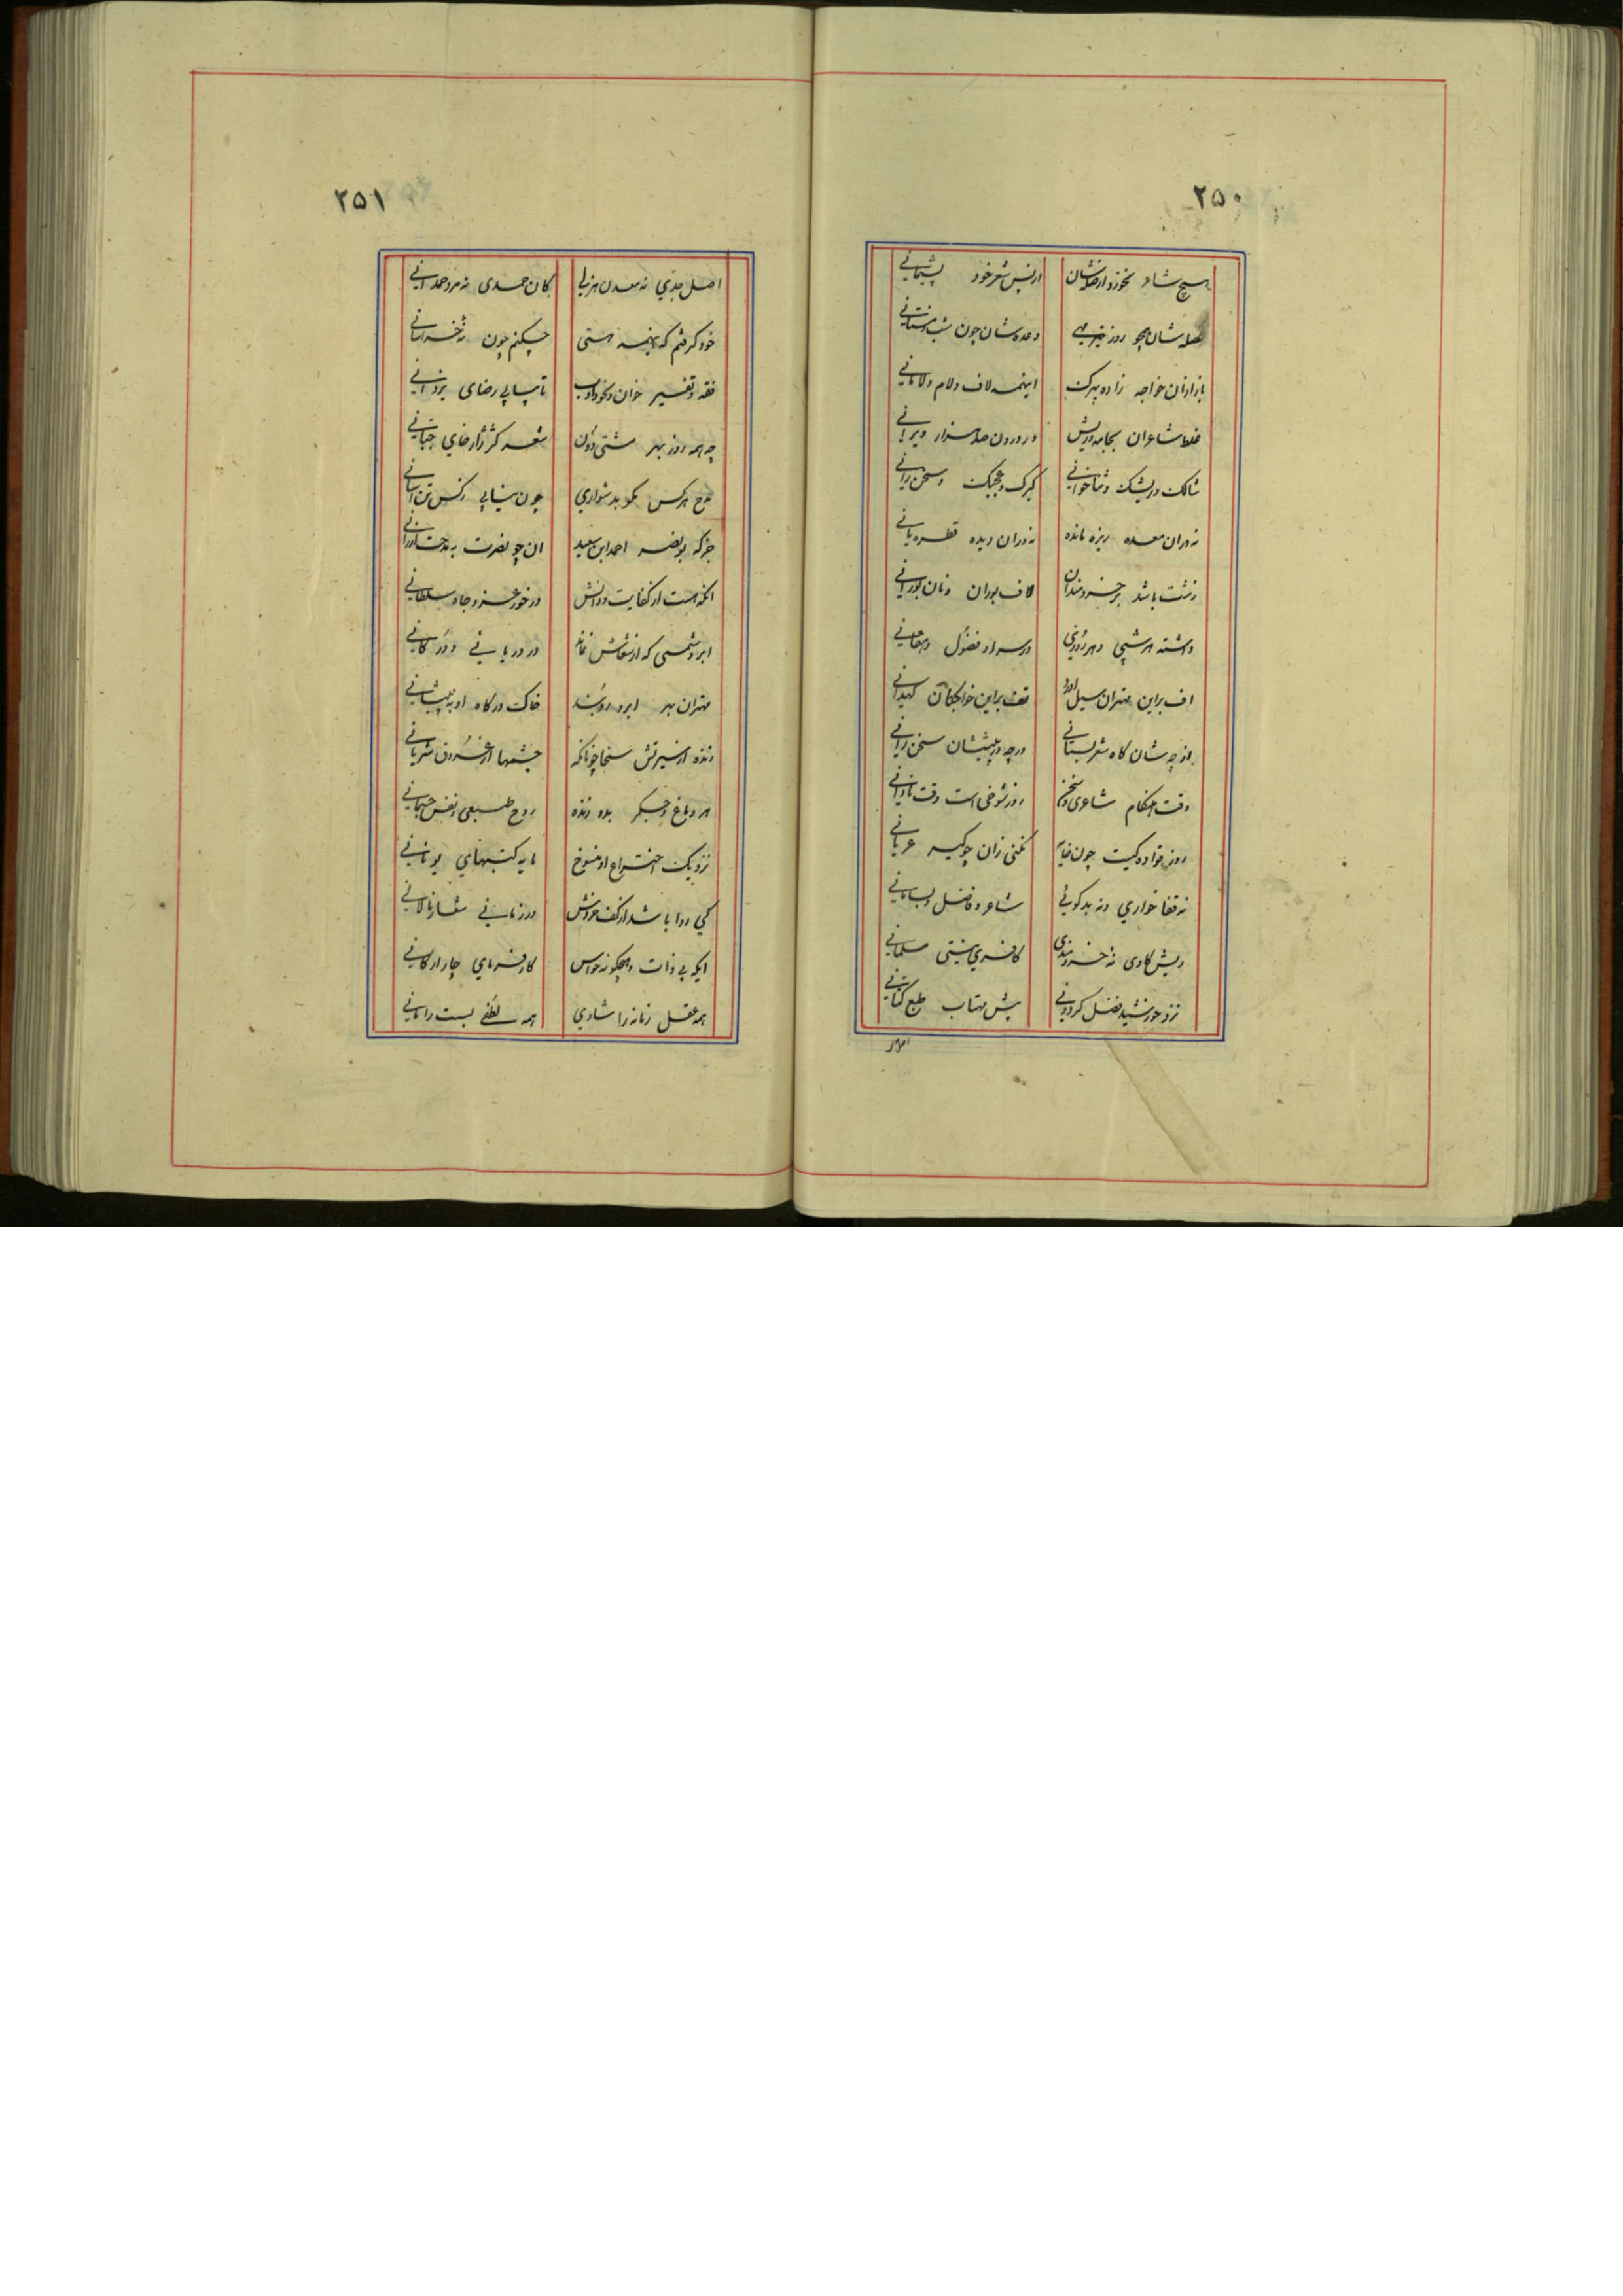 ۲۵۰
هیچ شاعر نخورد از صله‌شان از پس شعر خود پشیمانی
صله‌شان همچو روز وعده‌شان چون شب زمستانی
باز ازان خواجه زاده بیرک اینهمه لاف و لام و لامانی
غلط شاعران بجامه و ریش در درون صد هزار ویرانی
شالک و ریشک و ثنا خوانی کبرک و عجبک و سخن رانی
نه دران معده ریزه مانده نه دران دیده قطره پانی
زشت باشد بر خردمندان لاف بوران و نان بورانی
داشته هر شبی و هر روزی در سر از فضول دهقانی
اف براین مهتران سیل آورد تف براین خواجگان کهدانی
از چه شان گاه شعر بستانی در چه در پیششان سخن رانی
وقت احکام شاعری و سخن روز شوخی است وقت نادانی
روز قواده کیست چون خایه نکنی زان چو کیر عریانی
نه قفا خواری و نه بد گویی شاعر و فاضل و بسامانی
ریش گاوی نه خردمندی کافری نیستی مسلمانی
نزد خورشید فضل گردونی پیش مهتاب طبع کتانی
اصل
۲۵۱
اصل جدی نه معدن هزلی کان حمدی نه مرد حمدانی
خود گرفتم که اینهمه هستی چکنم چون نه خراسانی
فقه و تفسیر خوان و نحو و ادب تا بیابی رضای یزدانی
چه همه روز بهر مشتی دون شعر کژ ژاژ خای جبانی
مدح هر کس مگو بدشواری چون نیابی زکس تن آسانی
جز که بونصر احمد ابن سعید آن چو نصرت به مدحت ارزانی
آنکه هست از کفایت و دانش در خور عز و جاه سلطانی
ابر و شمسی که از سخاش نماند در دریایی و زر کانی
مهتران بهر ابرو روبند خاک درگاه او به پیشانی
زنده از سیرتش سخا چونانکه چشمها از عروق شریانی
هر دماغ و جگر بدو زنده روح طبیعی و نفس حیوانی
نزد یک اختراع او منسوخ مایه کتبهای یونانی
کی روا باشد از کف جودش در زمانی شعار نالانی
ایکه بی ذات همچگونه حواس کار فرمای چار ارکانی
همه عقل زمانه را شادی همه لطفی بست رامانی